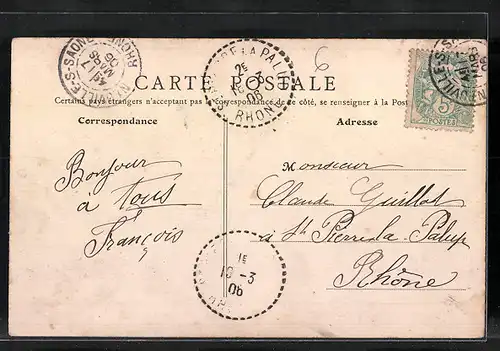 NEUVILLE-S-SAONE RHONE
17 MARS 06
2E
06
RHONE
6
CARTE POSTALE
Certains pays étrangers n'acceptant pas la correspondance de ce côté, se renseigner à la Poste
Correspondance
Adresse
5
POSTES
Bonjour
à tous
François
Monsieur
Claude Guillot
à St Pierre la Palup
Rhône
1E
19 -3
06